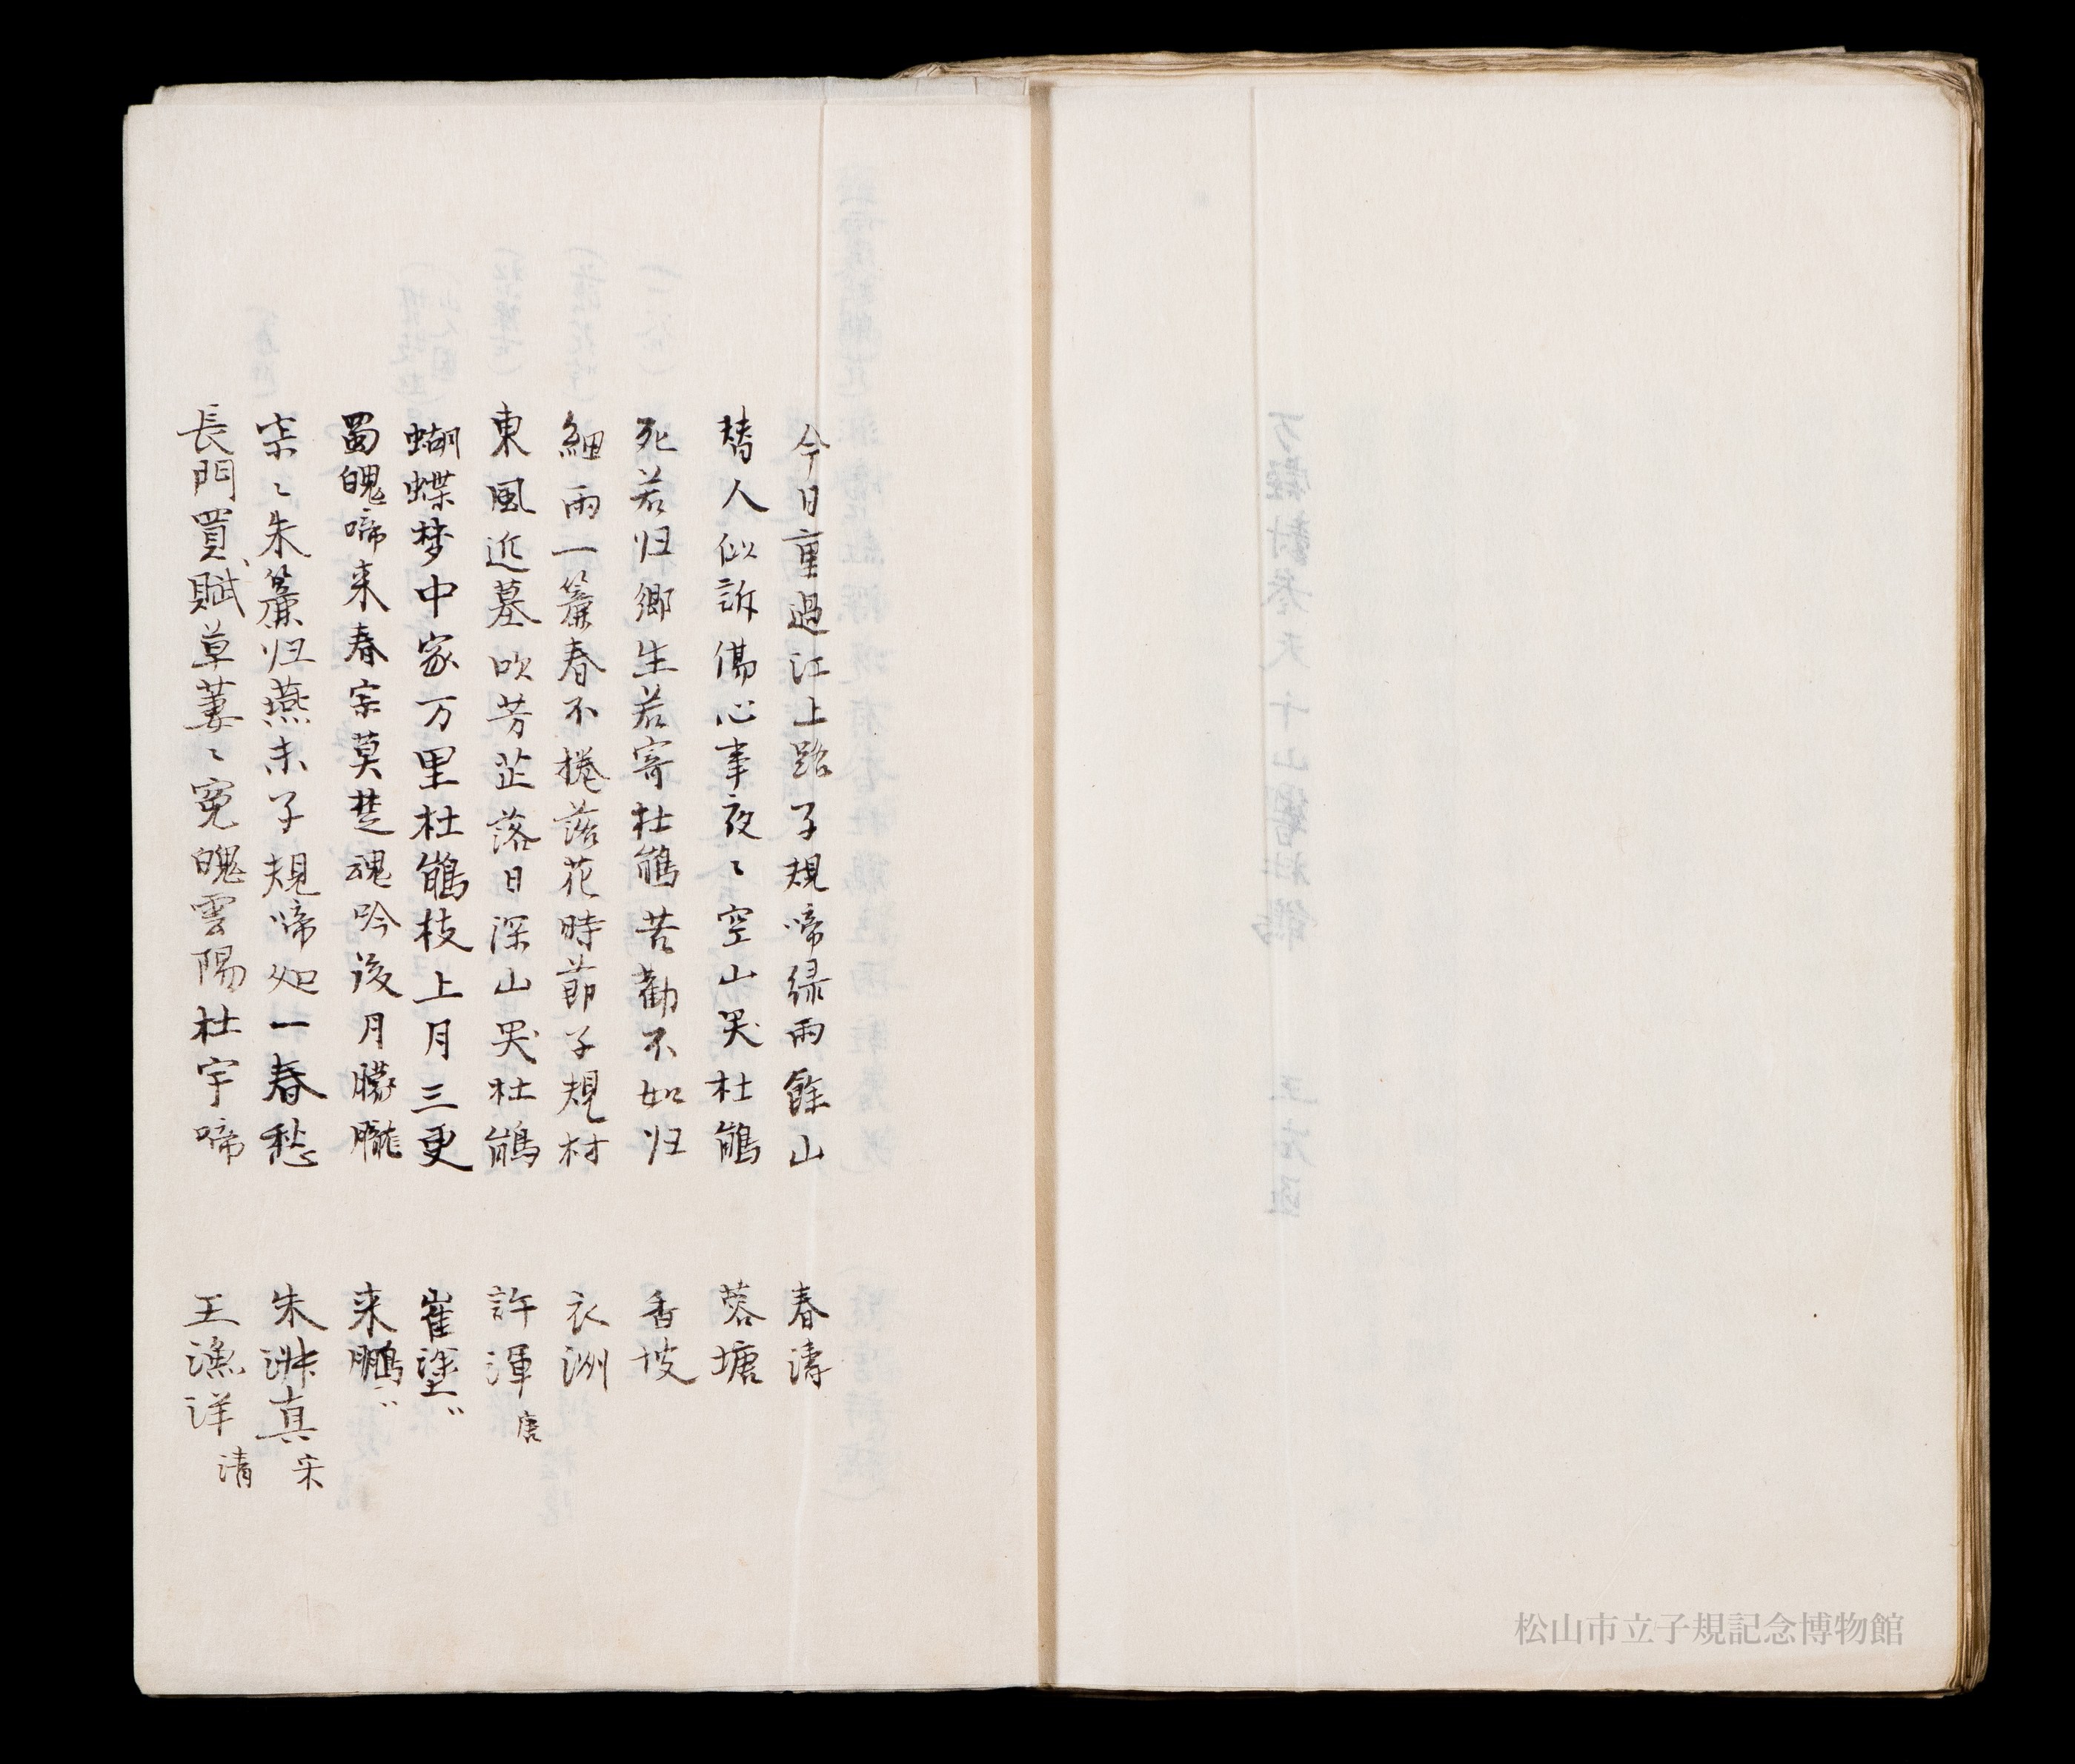 今日重過江上路子規啼緑雨餘山　春濤
替人似訴傷心事夜〻空山哭杜鵑　蓉塘
死若归郷生若寄杜鵑苦勸不如归　香坡
細雨一簾春不捲落花時節子規村　衣洲
東風近墓吹芳芷落日深山哭杜鵑　許渾 唐
蝴蝶梦中家万里杜鵑枝上月三更　崔塗〃
蜀魄啼来春寂莫楚魂吟後月朦朧　来鵬〃
寂〻朱簾归燕未子規啼処一春愁　朱淑真 宋
長門買賦草萋〻寃魄雲陽杜宇啼　王漁洋 清
松山市立子規記念博物館